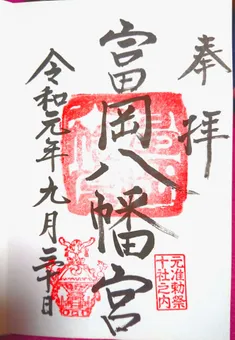 奉拝
富岡八幡宮
令和元年九月三十日
元准勅祭
十社之内